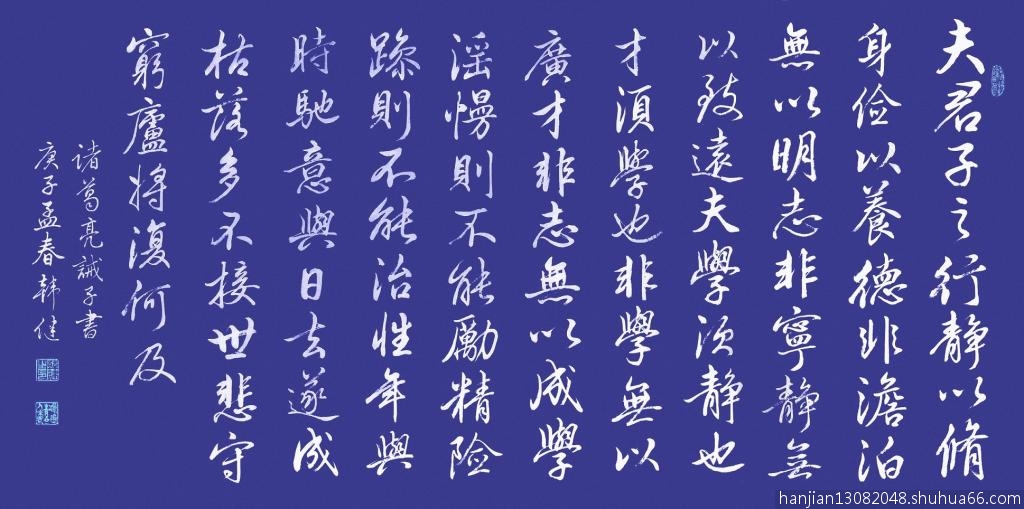 夫君子之行静以脩
身俭以養德非澹泊
無以明志非寧静無
以致遠夫學須静也
才須學也非學無以
廣才非志無以成學
滛慢則不能勵精险
躁則不能治性年與
時馳意與日去遂成
枯落多不接世悲守
窮廬將復何及
诸葛亮誡子書
庚子孟春韩健
hanjian13082048.shuhua66.com